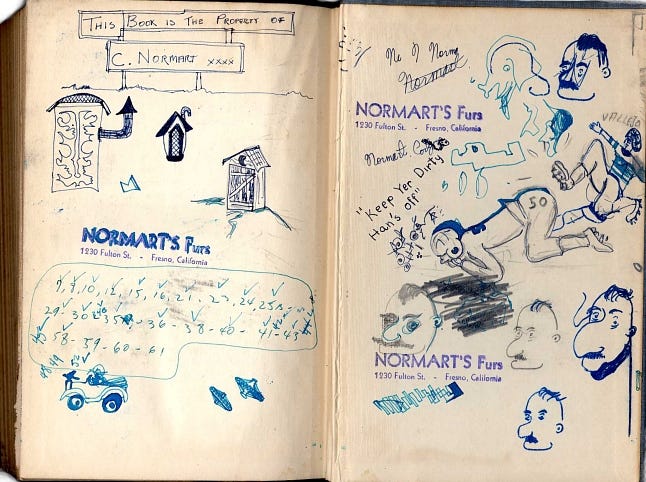 THIS BOOK IS THE PROPERTY OF
C. NORMART xxxx
NORMART'S Furs
1230 Fulton St. - Fresno, California
29 - 30
36 - 38 - 40 - 41 - 43
58 - 59 - 60 - 61
No
Normart
NORMART'S Furs
1230 Fulton St. - Fresno, California
Normart
"Keep Yer Dirty
Han's Off"
VALLEJO
50
NORMART'S Furs
1230 Fulton St. - Fresno, California